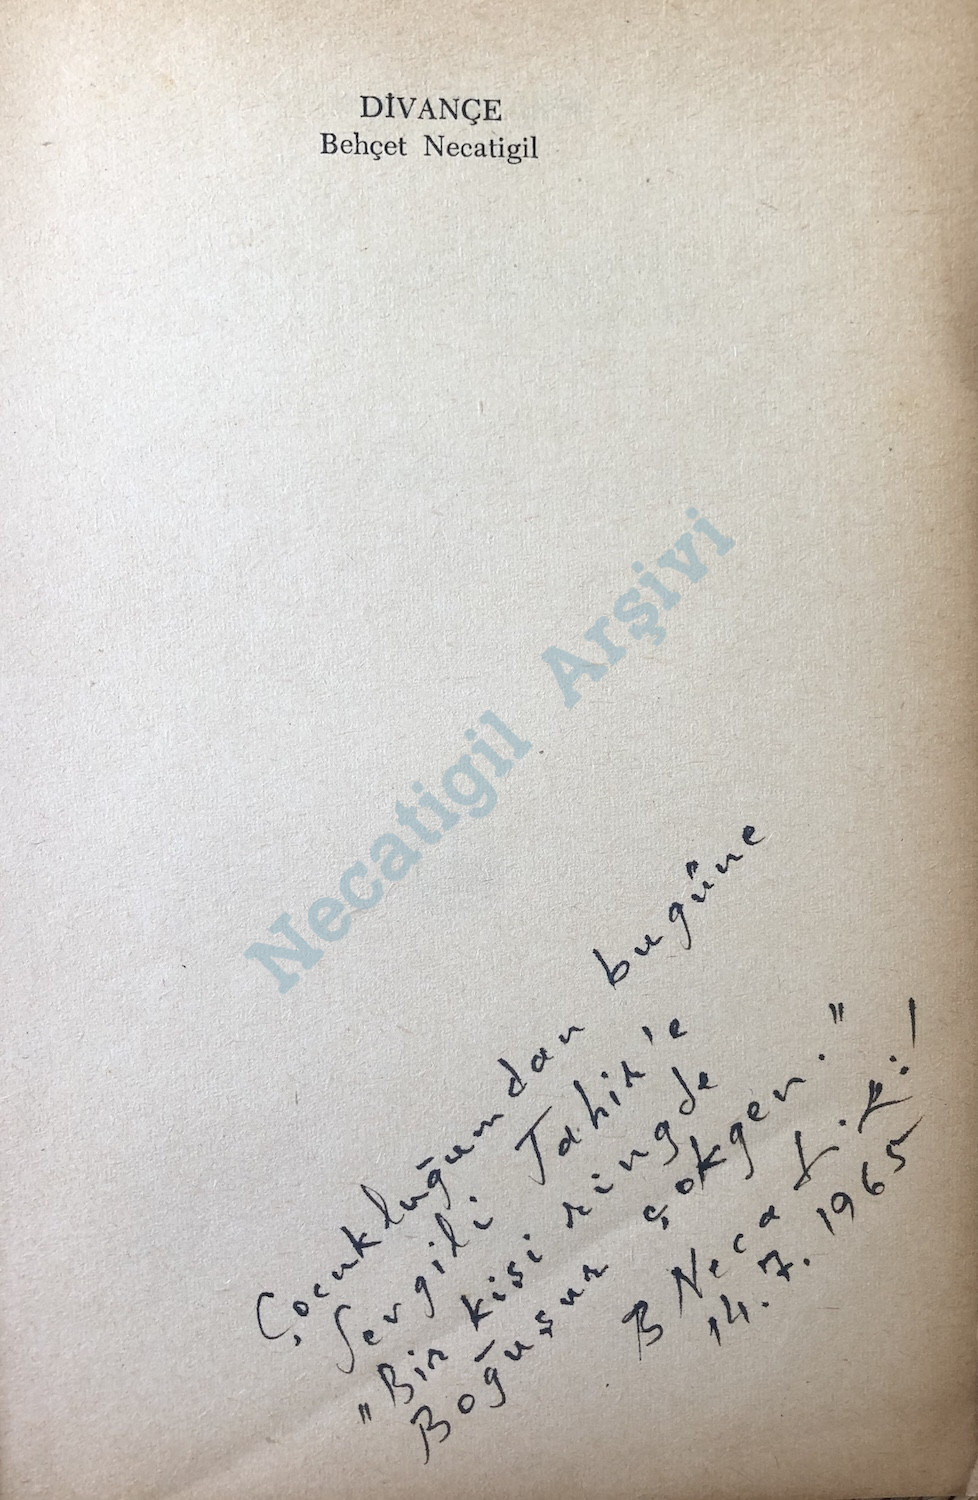 DİVANÇE
Behçet Necatigil
Necatigil Arşivi
Çocukluğumdan bugüne
Sevgili Tahir'e
"Bir kişi ringde
Boğuşur çokgen."
B Necatigil
14.7.1965